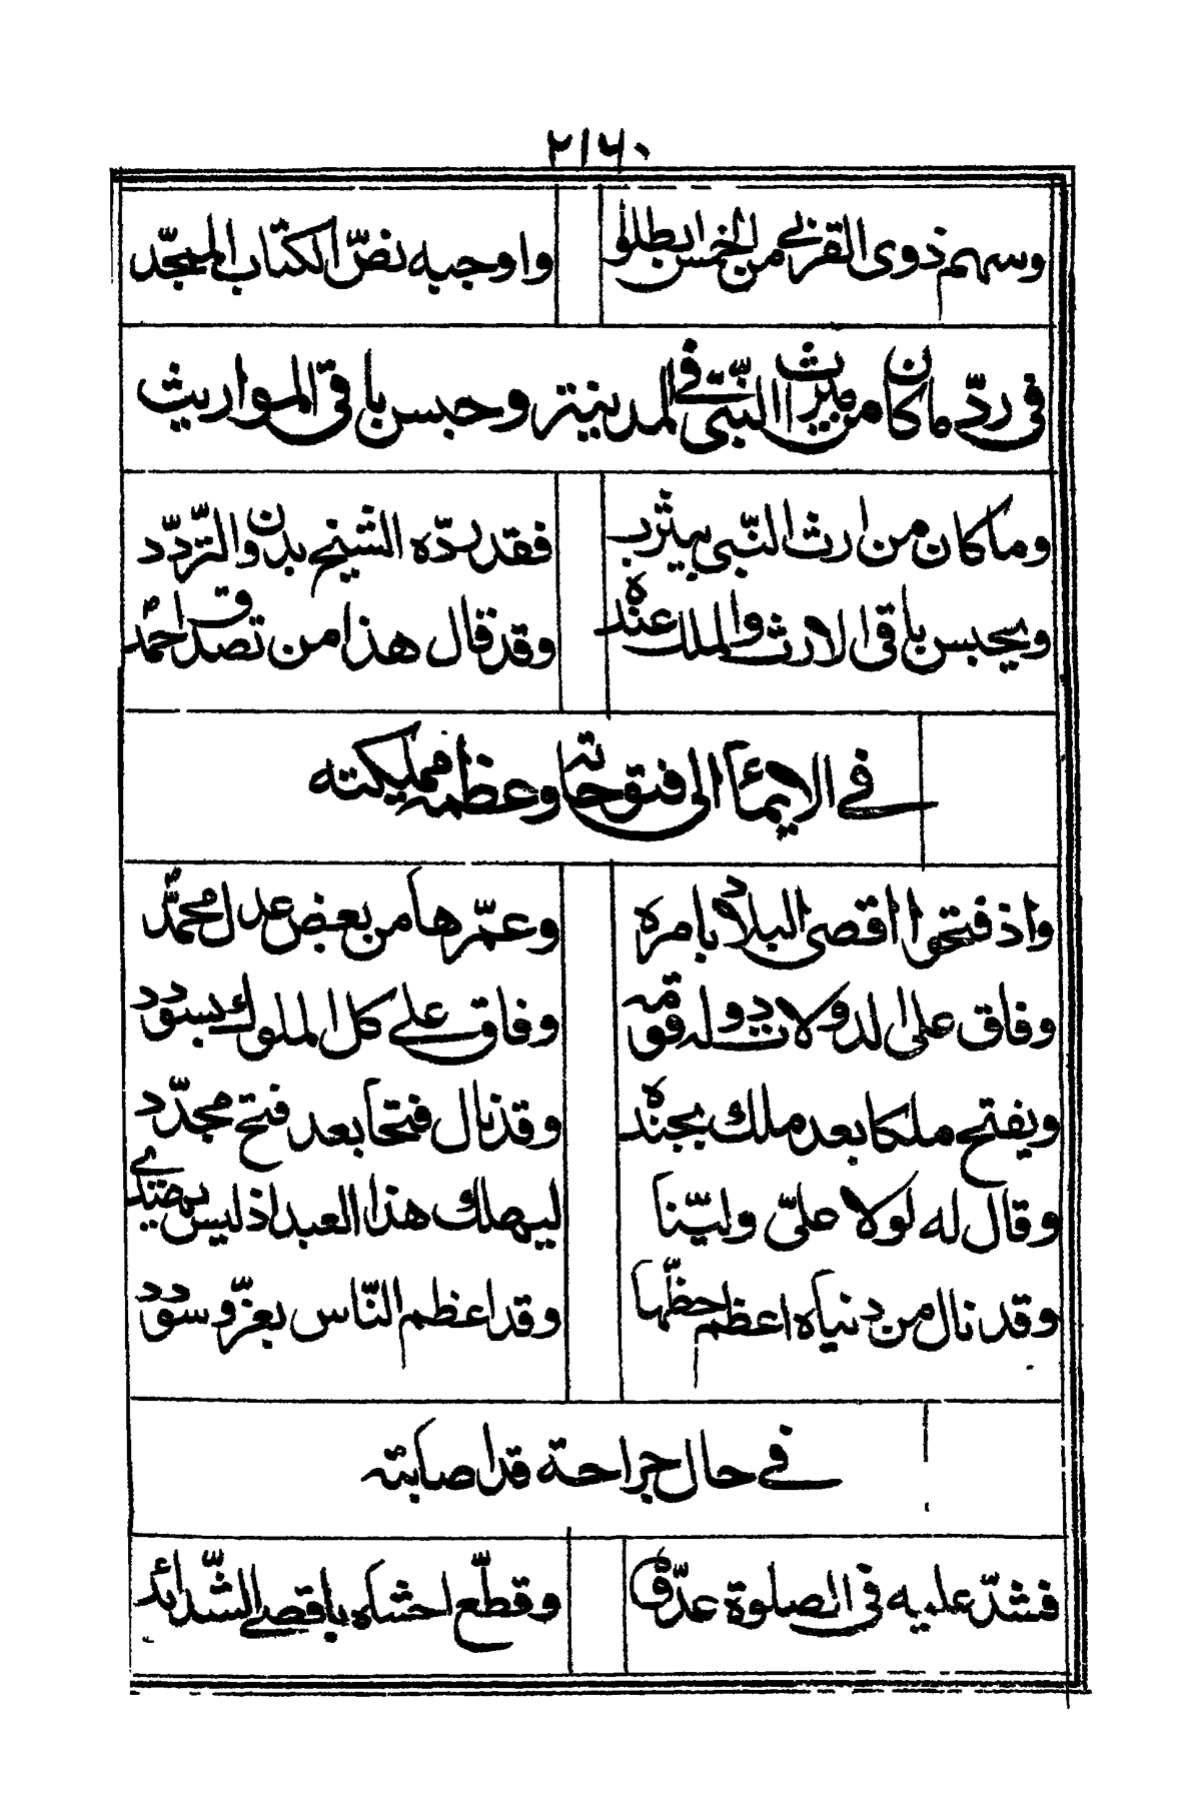 ٢١٦٠
وسهم ذوی القربی من الخمس ابطلوا واوجبه نصّ الکتاب الممجّد
فی ردّ ماکان من میراث النبّی فی المدینة وحبس باقی المواریث
وماکان من ارث النبّی بیثرب فقد ردّه الشیخ بدون التّردّد
ویحبس باقی الارث والملك عنده وقد قال هذا من تصدق احمد
فی الایمآء الی فتوحاته وعظم مملیکته
واذ فتحوا اقصی البلاد بامره وعمّرها من بعض عدل محمّد
وفاق علی الدولات دوله فوقه وفاق علی کل الملوك بسودد
ویفتح ملکا بعد ملك بجنده وقد نال فتحا بعد فتح مجدّد
وقال له لولا علیّ ولیّنا لیهلك هذا العبد اذ لیس یهتدی
وقد نال من دنیاه اعظم حظّها وقد اعظم النّاس بعزّ وسودد
فی حال جراحة قد اصابته
فشدّ علیه فی الصلوة عدّو وقطّع احشاه باقصی الشّدائد